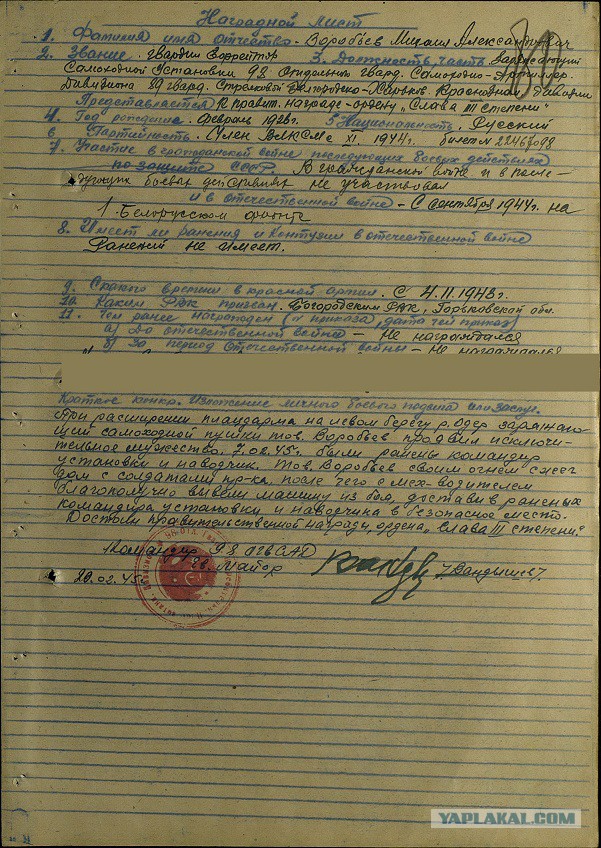 Наградной лист
1. Фамилия имя отчество - Воробьев Михаил Александрович
2. Звание. гвардии Ефрейтор 3. Должность, часть заряжающий
Самоходной Установки 98 Отдельного гвард. Самоходно-Артиллер.
Дивизиона 89 гвард. Стрелковой Белгородско-Харьков. Краснознам. Дивизии
Представляется К правит. награде - ордену "Слава III степени"
4. Год рождения. февраль 1926г. 5 Национальность. Русский
6 Партийность. Член ВЛКСМ с XI. 1944г. билет №
7. Участие в гражданской войне последующих боевых действиях
по защите СССР. В гражданской войне и в после-
дующих боевых действиях не участвовал
и в отечественной войне - С сентября 1944г. на
1-Белорусском фронте
8. Имеет ли ранения и контузии в отечественной войне
Ранений не имеет.
9. Скакого времени в красной армии. С 4.11.1943г.
10. Каким РВК призван. Богородским РВК, Горьковской обл.
11. Чем ранее награжден ( приказа, дата чей приказ)
а) До отечественной войны - Не награждался
б) За период Отечественной войны - Не награждался
Краткое конкр. Изложение личного боевого подвига или заслуг.
При расширении плацдарма на левом берегу р. Одер заряжаю-
щий самоходной пушки тов. Воробьев проявил исключи-
тельное мужество. 7.02.45г. были ранены командир
установки и наводчик. Тов. Воробьев своим огнем сжег
дом с солдатами пр-ка, после чего с мех-водителем
благополучно вывели машину из боя, доставив раненых
командира установки и наводчика в безопасное место.
Достоин правительственной награды, ордена "Слава III степени."
Командир 98 ОГВСАД
Гв. Майор /Вандышев/.
20.02.45г.
YAPLAKAL.COM